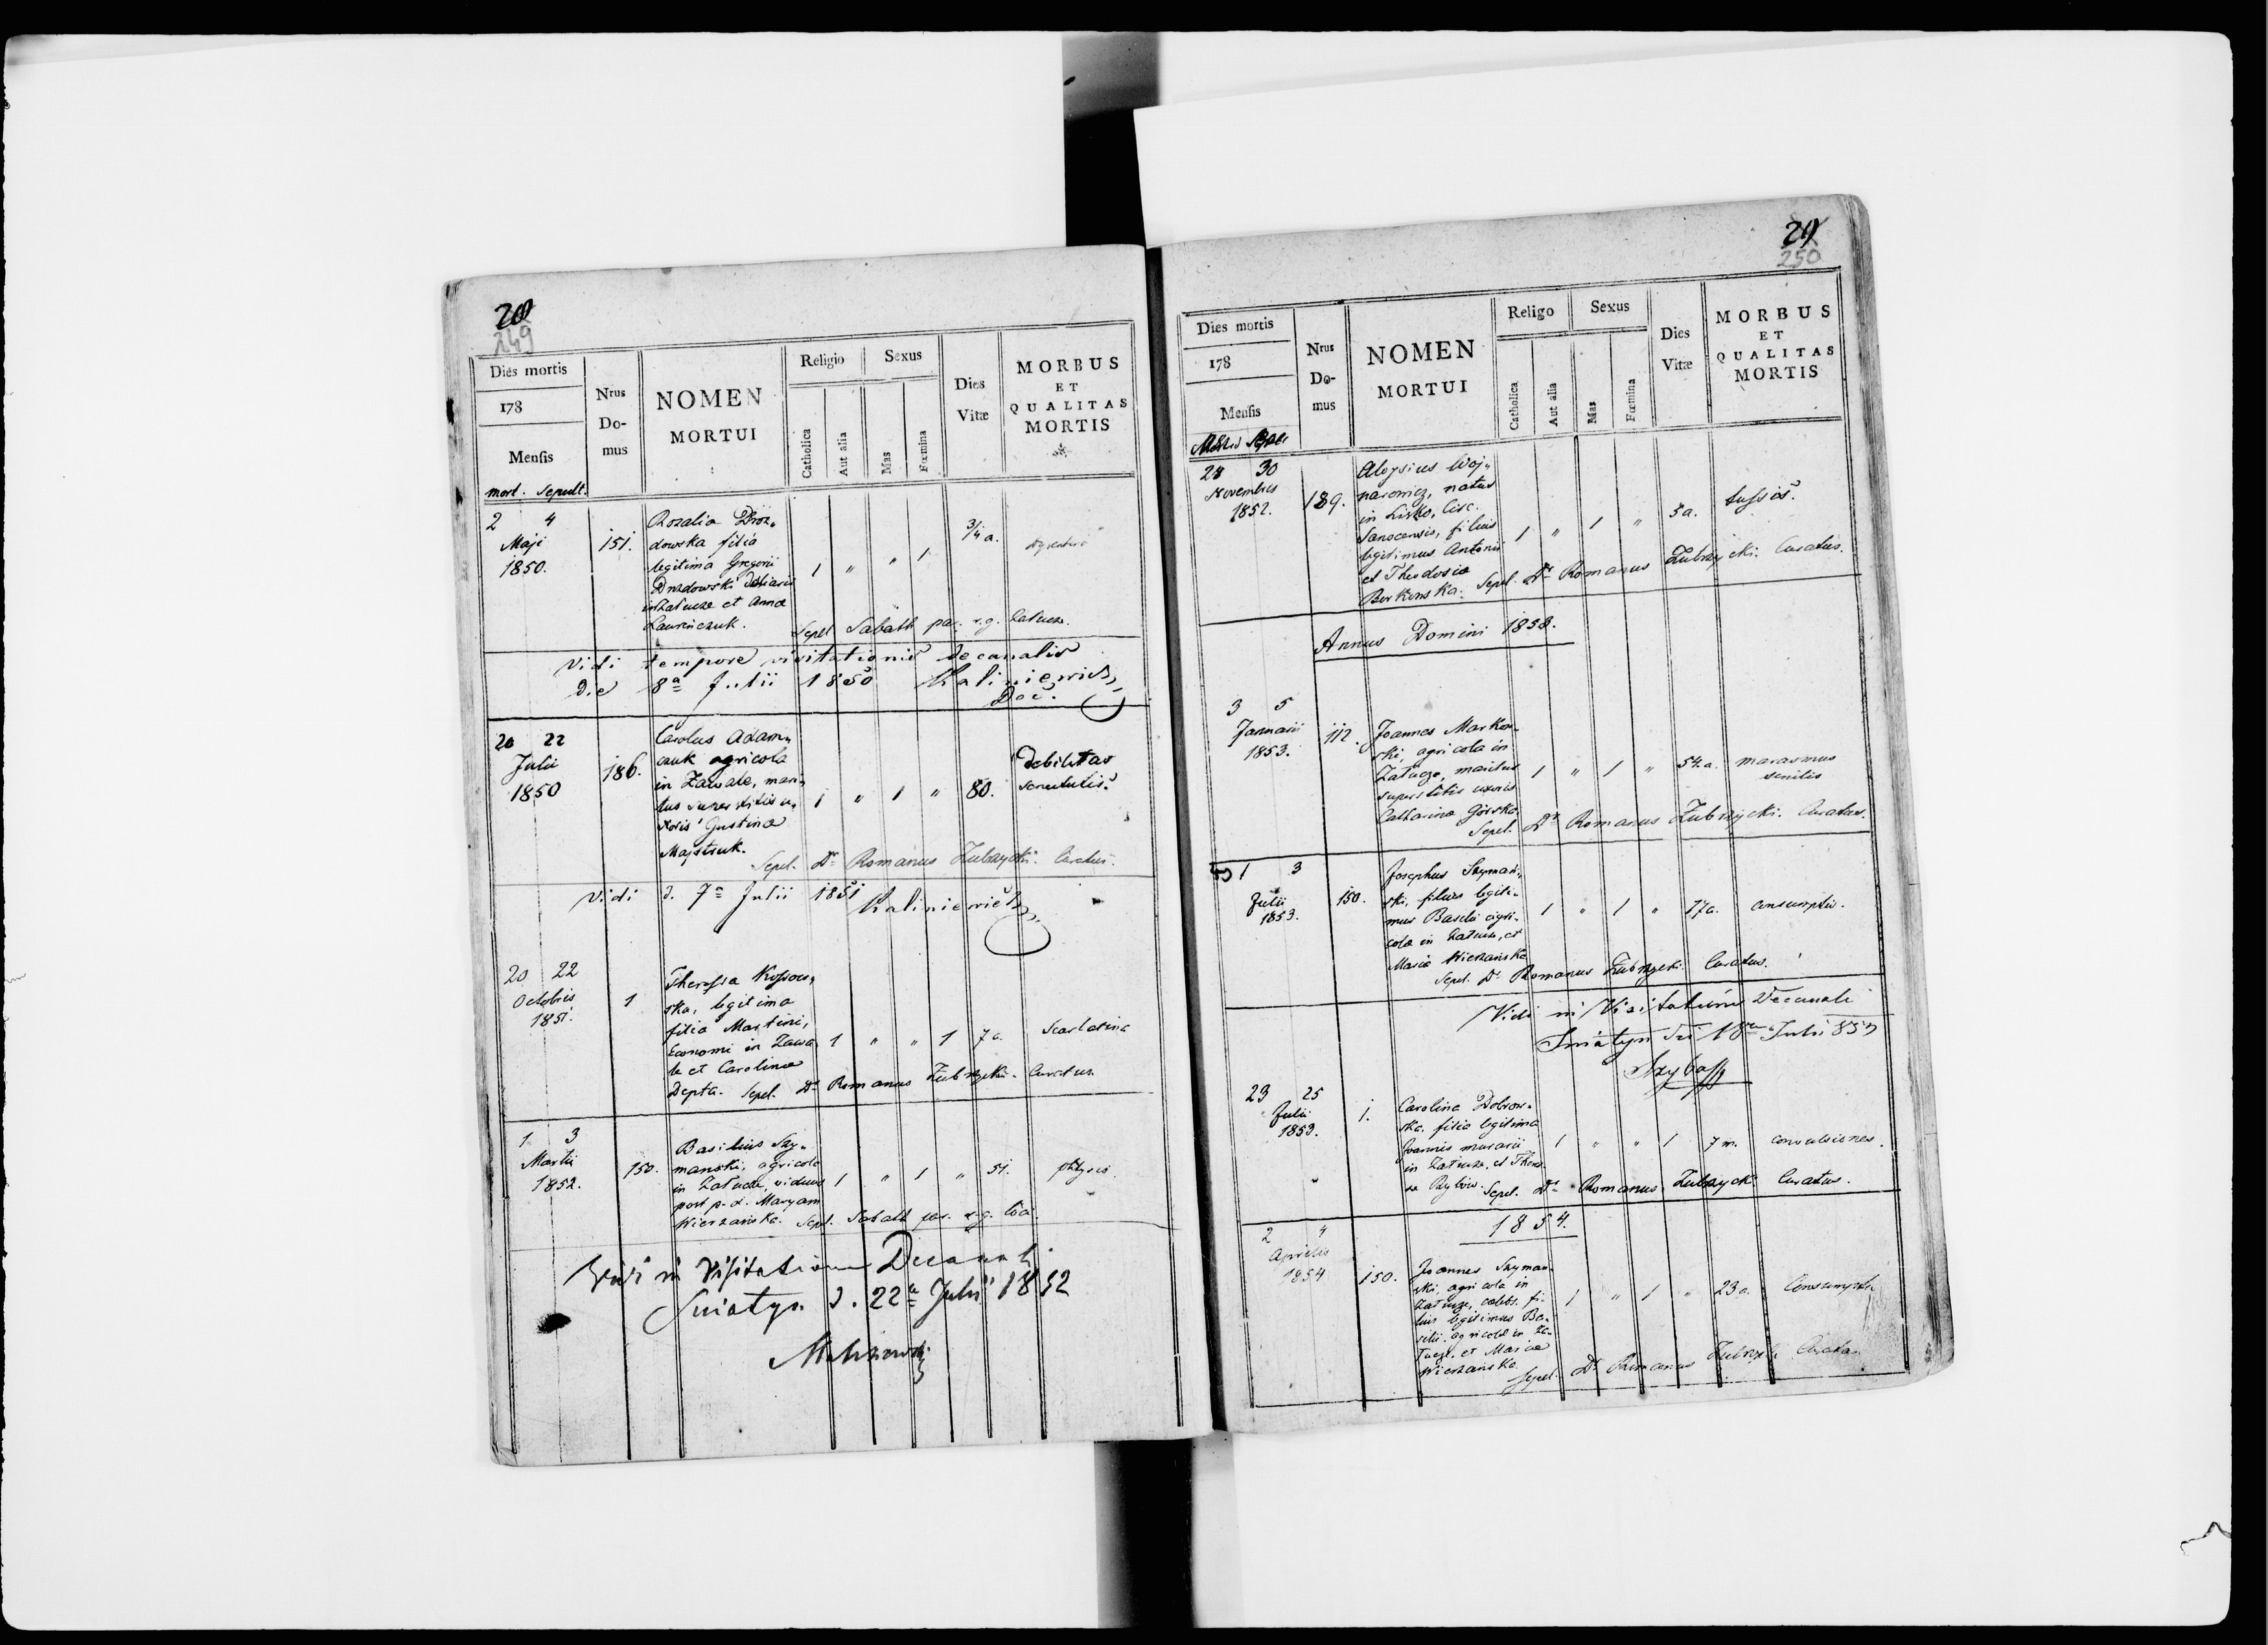 20
249
Dies mortis
178
Mensis
mort. Sepult.
Nrus
Do-
mus
NOMEN
MORTUI
Religio
Catholica
Aut alia
Sexus
Mas
Fœmina
Dies
Vitæ
MORBUS
ET
QUALITAS
MORTIS
2 4
Maji
1850.
151.
Rozalia Droz„
dowska filia
legitima Gregorii
Drozdowski
in Zatucze et Anna
Laurińczuk.
1 „ „ 1
3/4 a.
Sepel Sabath par. r.g. Zatucze.
Vidi tempore visitationis decanalis
Die 8ª Julii 1850 Kaliniewicz
Dec.
20 22
Julii
1850
186.
Carolus Adam„
czuk agricola
in Zawale, mari„
tus superstitis u„
xoris Justina
Majstruk.
1 „ 1 „
80.
Debilitas
senectutis.
Sepel. Dr Romanus Zubrzycki. Curatus.
Vidi d. 7ª Julii 1851 Kaliniewicz
20 22
Octobris
1851.
1
Theressa Kossow„
ska, legitima
filia Martini,
Economi in Zawa
le et Carolina
Depta.
1 „ „ 1
7 a.
Scarlatina
Sepel. Dr Romanus Zubrzycki. Curatus.
1 3
Martii
1852.
150.
Basilius Szy„
manski, agricola
in Zatucze, viduus
post p. d. Maryam
Wierzańska.
1 „ 1 „
51.
phtysis.
Sepel. Sabath par. r.g. lóci.
Vidi in Visitatione Decanali
Sniatyn d. 22ª Julii 1852
29
250
Dies mortis
178
Mensis
Nrus
Do-
mus
NOMEN
MORTUI
Religo
Catholica
Aut alia
Sexus
Mas
Fœmina
Dies
Vitæ
MORBUS
ET
QUALITAS
MORTIS
28 30
Novembris
1852.
189.
Aloysius Woj„
narowicz, natus
in Lisko, Circ.
Sanocensis, filius
legitimus Antonii
et Theodosia
Borkowska.
1 „ 1 „
5 a.
tussis.
Sepel. Dr Romanus Zubrzycki. Curatus.
Annus Domini 1853.
3 5
Januarii
1853.
112.
Joannes Markow„
ski, agricola in
Zatucze, maritus
superstitis uxoris
Catharina Górska.
1 „ 1 „
54. a.
marasmus
senilis
Sepel. Dr Romanus Zubrzycki. Curatus.
1 3
Julii
1853.
150.
Josephus Szyman„
ski, filius legiti„
mus Basilii agri„
cola in Zatucze, et
Maria Wierzańska
1 „ 1 „
17 a.
consumptio.
Sepel. Dr Romanus Zubrzycki. Curatus.
Vidi in Visitatione Decanali
Sniatyn 18 Julii 853
23 25
Julii
1853.
1.
Carolina Dobrow„
ska. filia legitima
Joannis murarii
in Zatucze, et There„
sa Rybow.
1 „ „ 1
7 m.
convulsiones.
Sepel. Dr Romanus Zubrzycki. Curatus.
1854.
2 4
Aprilis
1854
150.
Joannes Szyman„
ski, agricola in
Zatucze, celebs. fi„
lius legitimus Ba„
silii, agricola in Za„
tucze, et Maria
Wierzańska.
1 „ 1 „
23 a.
Consumptio
Sepel. Dr Romanus Zubrzycki Curatus